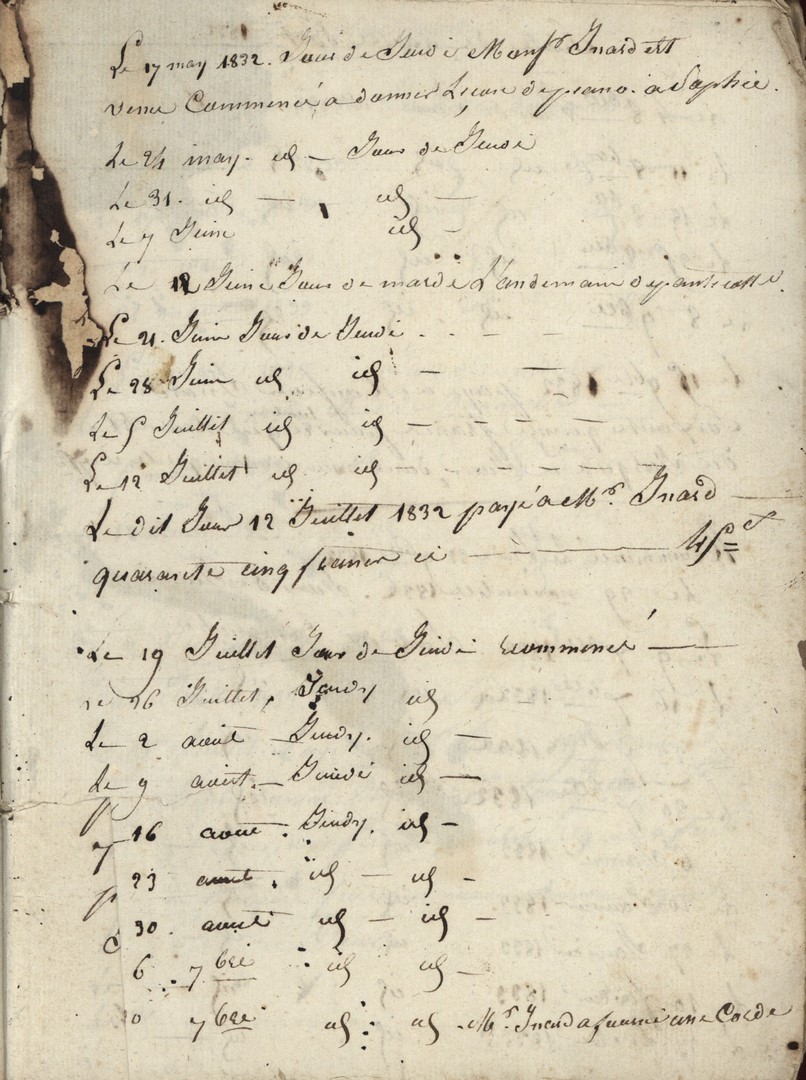 Le 17 may 1832. Jour de Jeudi Monsr. Inard est
venu Commencé a donner Leçon de piano. a Sophie.
Le 24 may. id — Jour de Jeudi
Le 31. id — id —
Le 7 Juin id —
Le 12 Juin Jour de mardi L'andemain de pantecotte.
Le 21. Juin Jour de Jeudi . - - -
Le 28 Juin id id — —
Le 5 Juillet id id — — — —
Le 12 Juillet id id — — — —
Le dit Jour 12 Juillet 1832 payé a Mr. Inard —
quarante cinq francs ci — 45 =
Le 19 Juillet Jour de Jeudi recommencé —
Le 26 Juillet, Jeudy id
Le 2 aout — Jeudy. id —
Le 9 aout. — Jeudi id —
16 aout. Jeudy. id —
23 aout. id — id —
30. aout id — id —
6 7bre id id —
7bre id id - Mr. Inard a fourni une Corde